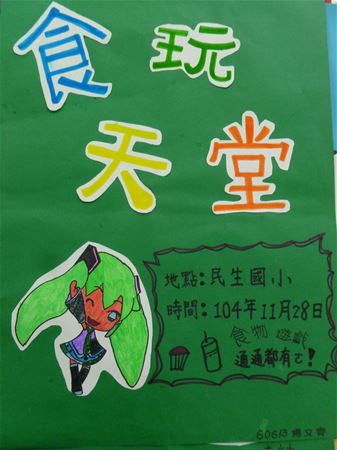 食玩
天堂
地點：民生國小
時間：104年11月28日
食物 遊戲
通通都有ㄛ！
60613